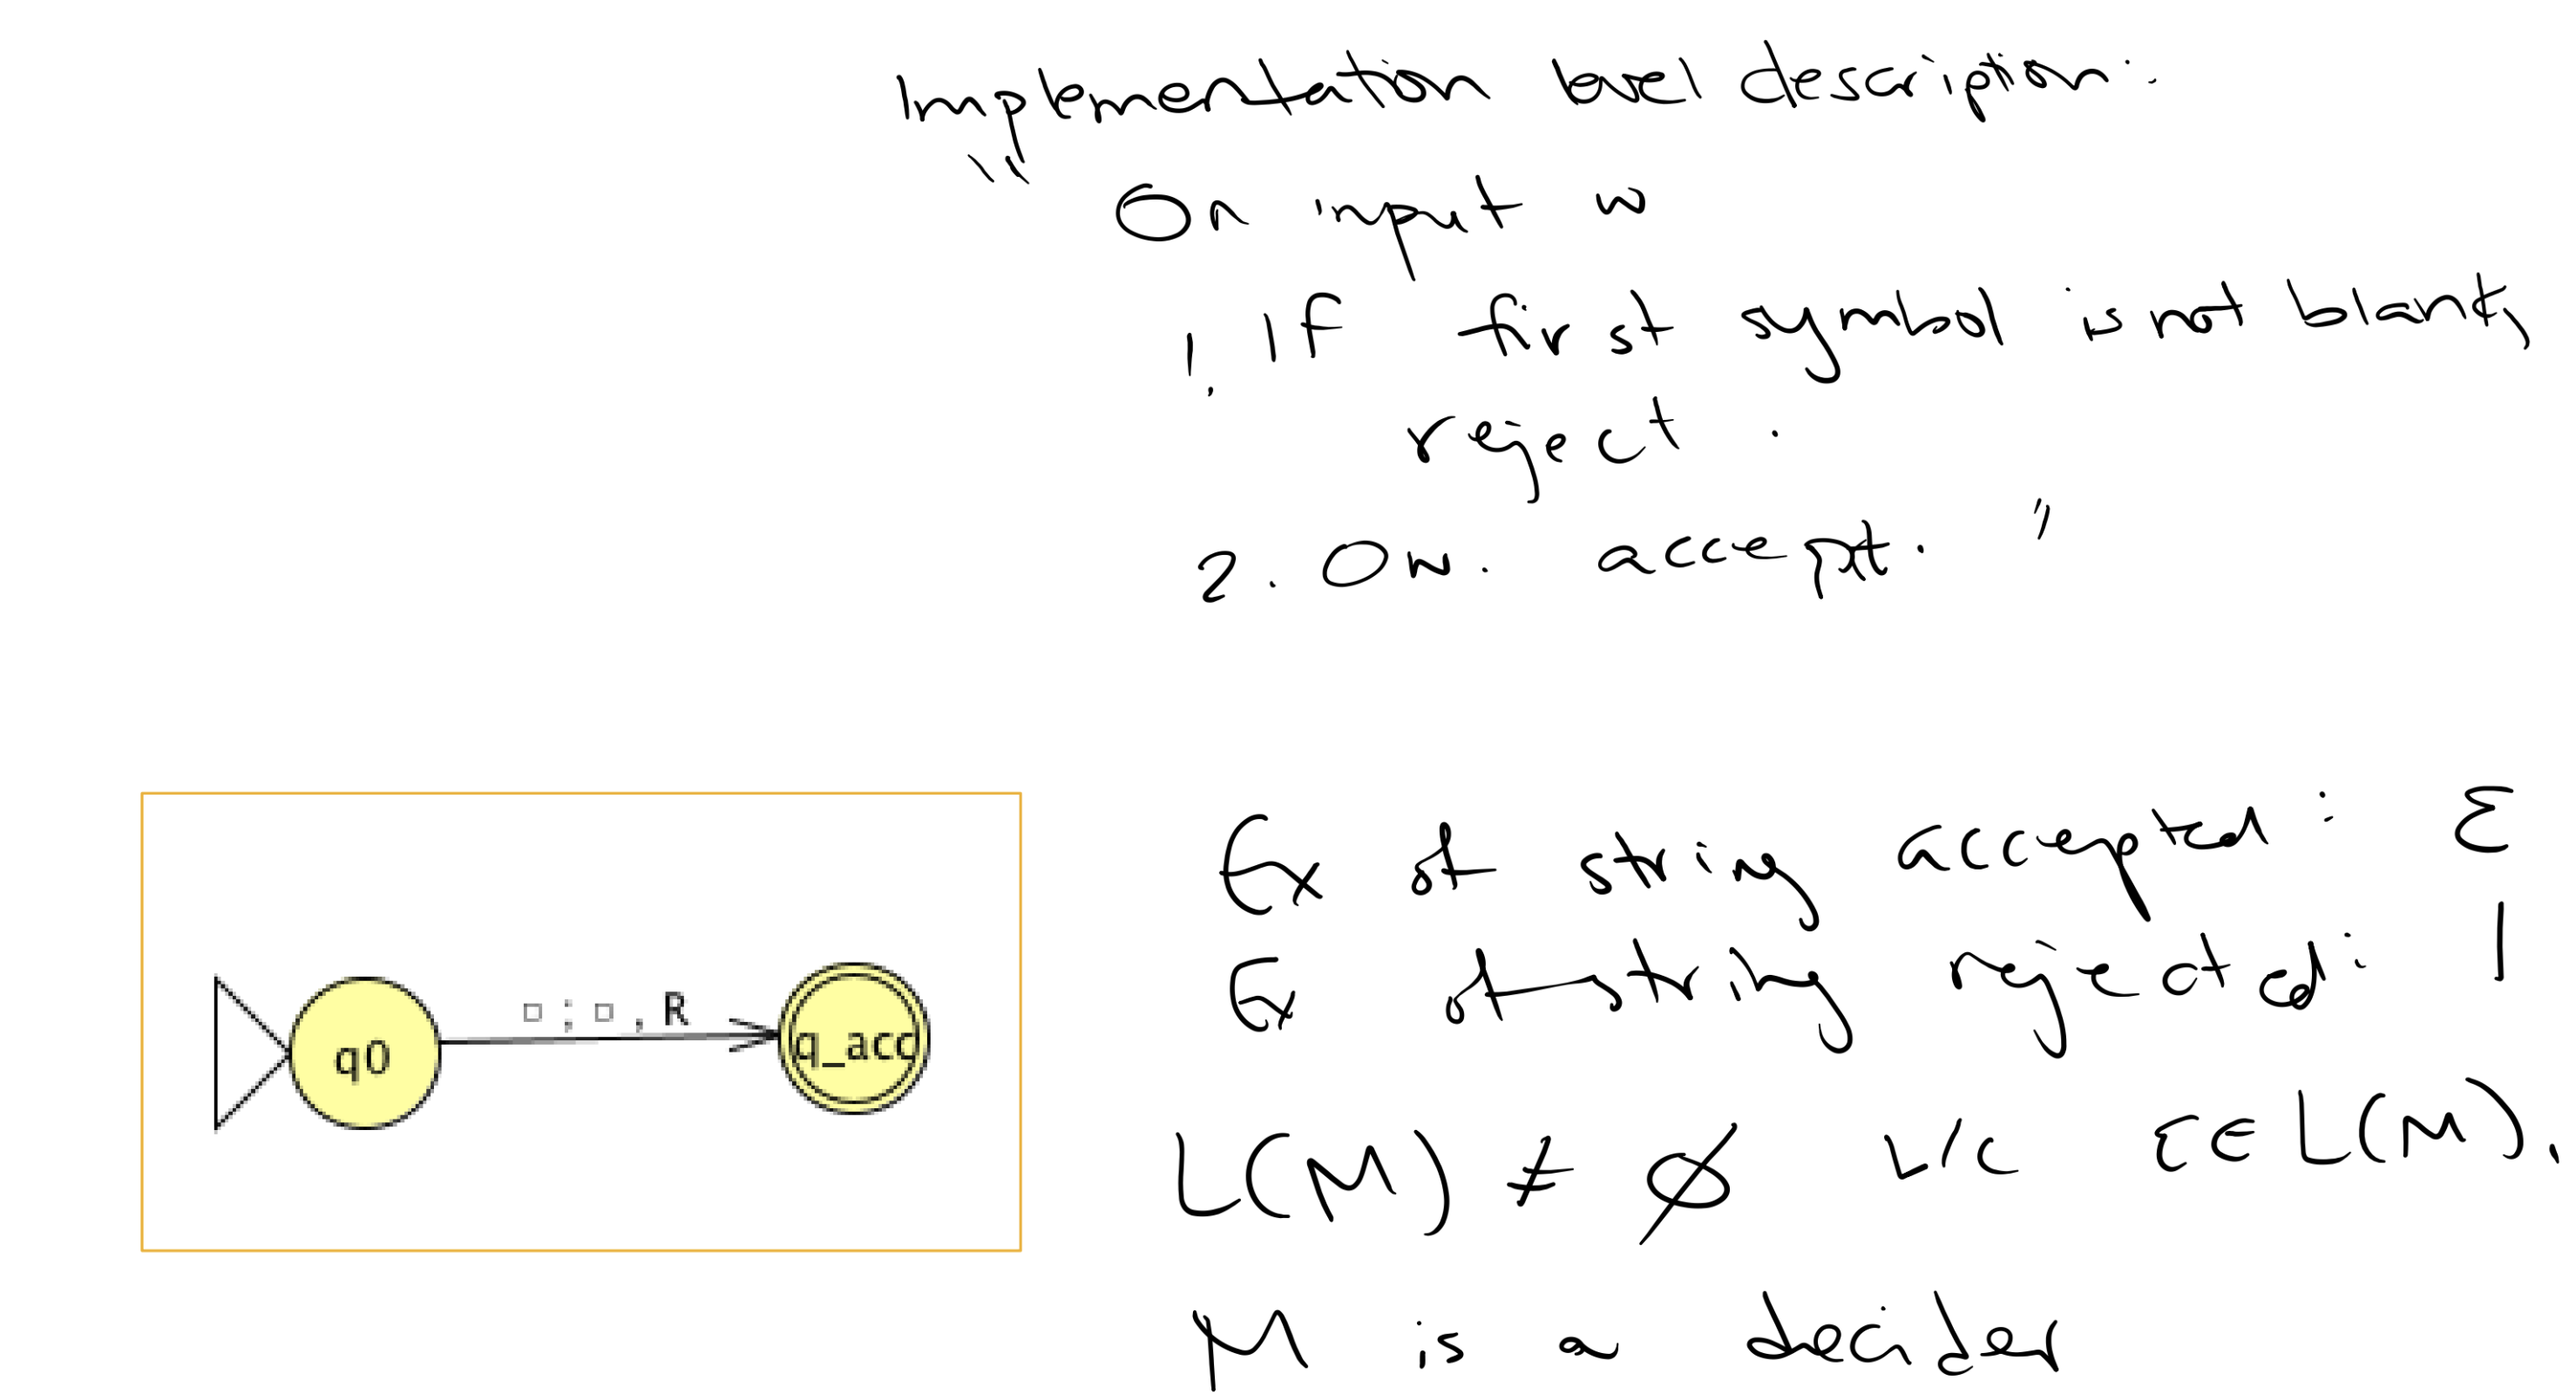 Implementation level description:
"On input w
1. If first symbol is not blank,
reject.
2. Ow. accept."
□ ; □ , R
q0
q_acc
Ex of string accepted: ε
Ex of string rejected: 1
L(M) ≠ ∅ b/c ε ∈ L(M).
M is a decider